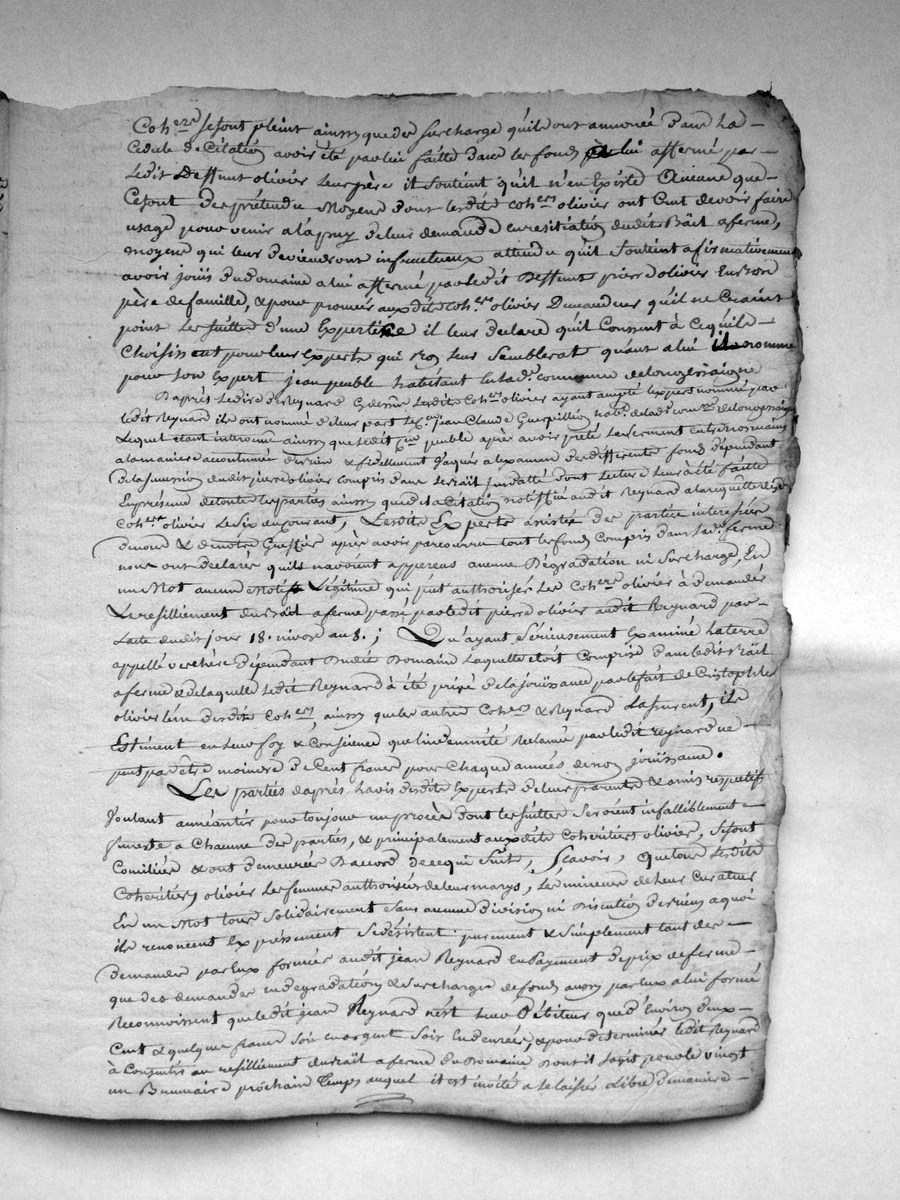 Coh.ers se sont pleint ainsy que des surcharge qu'ils ont annoncé dans la
Cedule de Citation avoir été par lui faitte dans les fonds a lui affermé par
ledit deffunt olivier leur père il soutient qu'il n'en Existe Aucune que
Cesont des prétendu Moyens dont lesdits coh.ers olivier ont Cru devoir faire
usage pour venir a lapuy de leur demande en resiliation dudit Bail a ferme,
moyens qui leur deviendront infructueux attendu qu'il soutient afirmativement
avoir jouis du domaine a lui affermé par ledit deffunt pierre olivier en bon
père de famille, & pour prouver auxdits coh.ers olivier Demandeurs qu'il ne Craint
point les suittes d'une Expertise il leur declare qu'il Consent à cequ'ils
Choisissent pour leur Experts qui bon leur semblerat quant a lui il nomme
pour son Expert jean peuble habitant en lad. commune de longessaigne
D'après le dire de Reynard Cydessus lesdits Coh.ers olivier ayant accepté l'expert nommé par
ledit Reynard ils ont nommé de leur part le C.en jean Claude Guerpillon hab. de lad. com.e de longessaigne
Lequel étant intervenu ainsy que ledit C.en peuble après avoir prété le serment entre nos mains
a la maniere accoutumée de bien & fidellement vaquer a lexamen des differents fonds dépendant
de la succession dudit pierre olivier compris dans le bail susdatté dont lecture leur a été faitte
En présence de toutes les parties ainsy que de la Citation notiffiée audit Reynard a la requette desd.
coh.ers olivier le six du courant, Lesdits Experts assistés des parties interessées
de nous & de nôtre Greffier après avoir parcourru tout les fonds compris dans lad. ferme
nous ont declarés qu'ils n'avoient apperçus aucune Dégradation ni surcharge, En
un Mot aucun Motifs Légitime qui put authoriser les Coh.ers olivier à demander
Le resilliement du Bail a ferme passé par ledit pierre olivier audit Reynard par
l'acte dudit jour 18. nivose an 8. ; Qu'ayant sérieusement Examiné la terre
appellé verchère dépendant dudit domaine laquelle étoit comprise dans ledit Bail
a ferme & de laquelle ledit Reynard à été privé de la jouissance par le fait de Cristophle
olivier l'un desdits Coh.ers, ainsy que les autres Coh.ers & Reynard l'assurent, ils
Estiment en leur foy & Conscience que lindemnité reclamée par ledit reynard ne
peut pas être moindre de Cent francs pour chaque années de non jouissance.
Les parties d'après l'avis desdits Experts de leur parents & amis respectifs
Voulant annéantir pour toujours un procès dont les suittes seroient infailliblement
funeste a Chacune des parties, & principalement auxdits Cohéritiers olivier, se sont
Conciliées & ont demeurées D'accord de ce qui suit, Scavoir, que tous lesdits
Cohéritiers olivier les femmes authorisées de leur marys, les mineurs de leur Curateur
En un Mot tous Solidairement sans aucune Division ni Discution de biens a quoi
ils renoncent Expréssement se désistent purement & simplement tant des
demandes par Eux formées audit jean Reynard en payement de prix de ferme
que des demandes en dégradations & surcharge de fonds aussy par Eux a lui formé
Reconnoissent que ledit jean Reynard n'est leur Débiteur que d'Environ deux
Cent & quelque francs soit en argent soit en denrées, & pour determiner ledit Reynard
à Consentir au résilliement du Bail a ferme du Domaine dont il sagit pour le vingt
un Brumaire prochain Temps auquel il est invité a le laisser libre de maniere